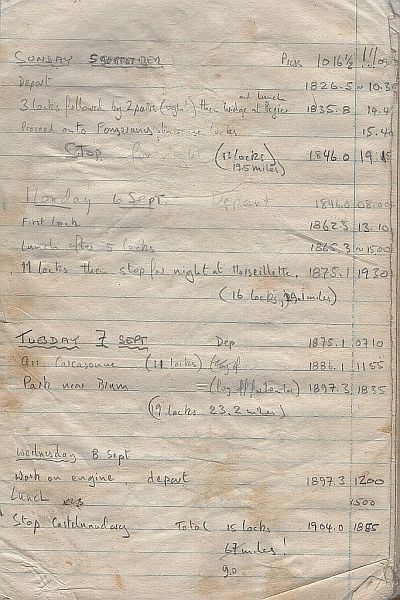 SUNDAY 5 SEPTEMBER Press 1016½
Depart 1826.5 ~ 10.35
and lunch
3 locks followed by 2 pairs then bridge at 1835.8 14.4
Proceed onto Fonserannes staircase locks 15.40
Stop for night (13 locks) 1846.0 19.15
19.5 miles)
Monday 6 Sept. Depart 1846.0 08.00
First Lock 1862.3 13.10
Lunch after 5 locks 1865.3 ~1500
11 locks then stop for night at Marseillette. 1875.1 1930
(16 locks, 29.1 miles)
TUESDAY 7 SEPT Dep 1875.1 0710
Arr Carcasonne (11 locks) 1886.1 1155
Park near Bram 1897.3 1835
(19 locks 23.2 miles)
Wednesday 8 Sept
Work on engine. depart 1897.3 1200
Lunch 1500
Stop Castelnaudary Total 15 locks 1904.0 1855
6.7 miles!